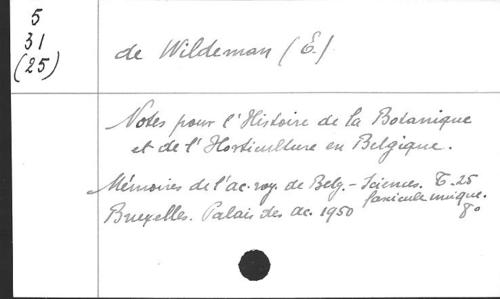 5
31
(25)
de Wildeman (É.)
Notes pour l'Histoire de la Botanique
et de l'Horticulture en Belgique.
Mémoires de l'ac. roy. de Belg. - Sciences. T. 25
fascicule unique.
Bruxelles. Palais des ac. 1950
8o